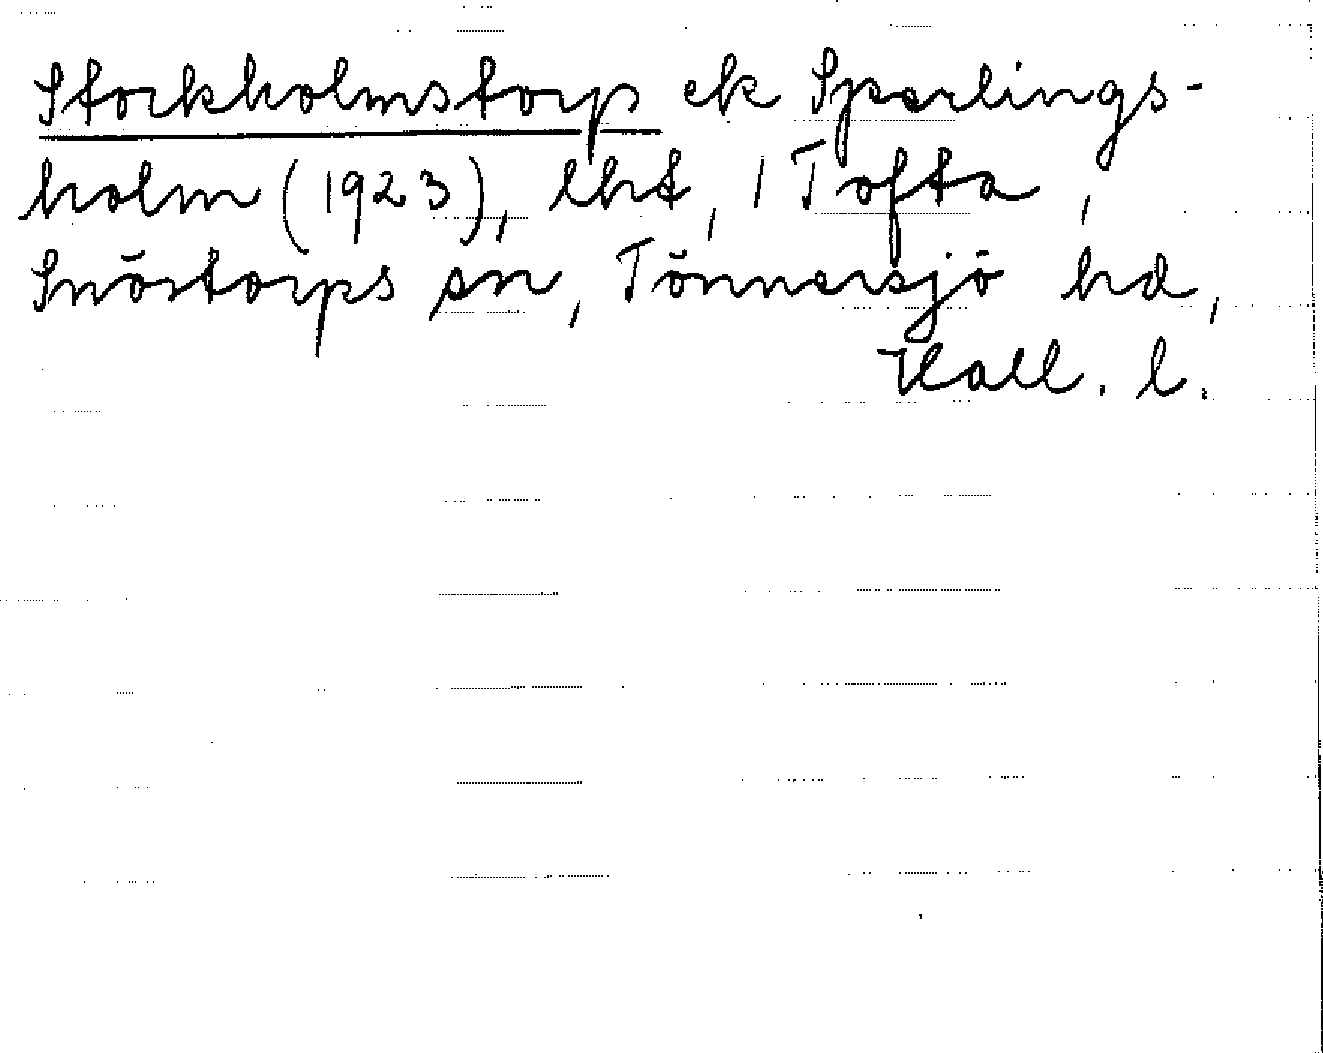 Stockholmstorp ek Sperlings-
holm (1923), lht, 1 Tofta,
Snöstorps sn, Tönnersjö hd,
Hall. l.